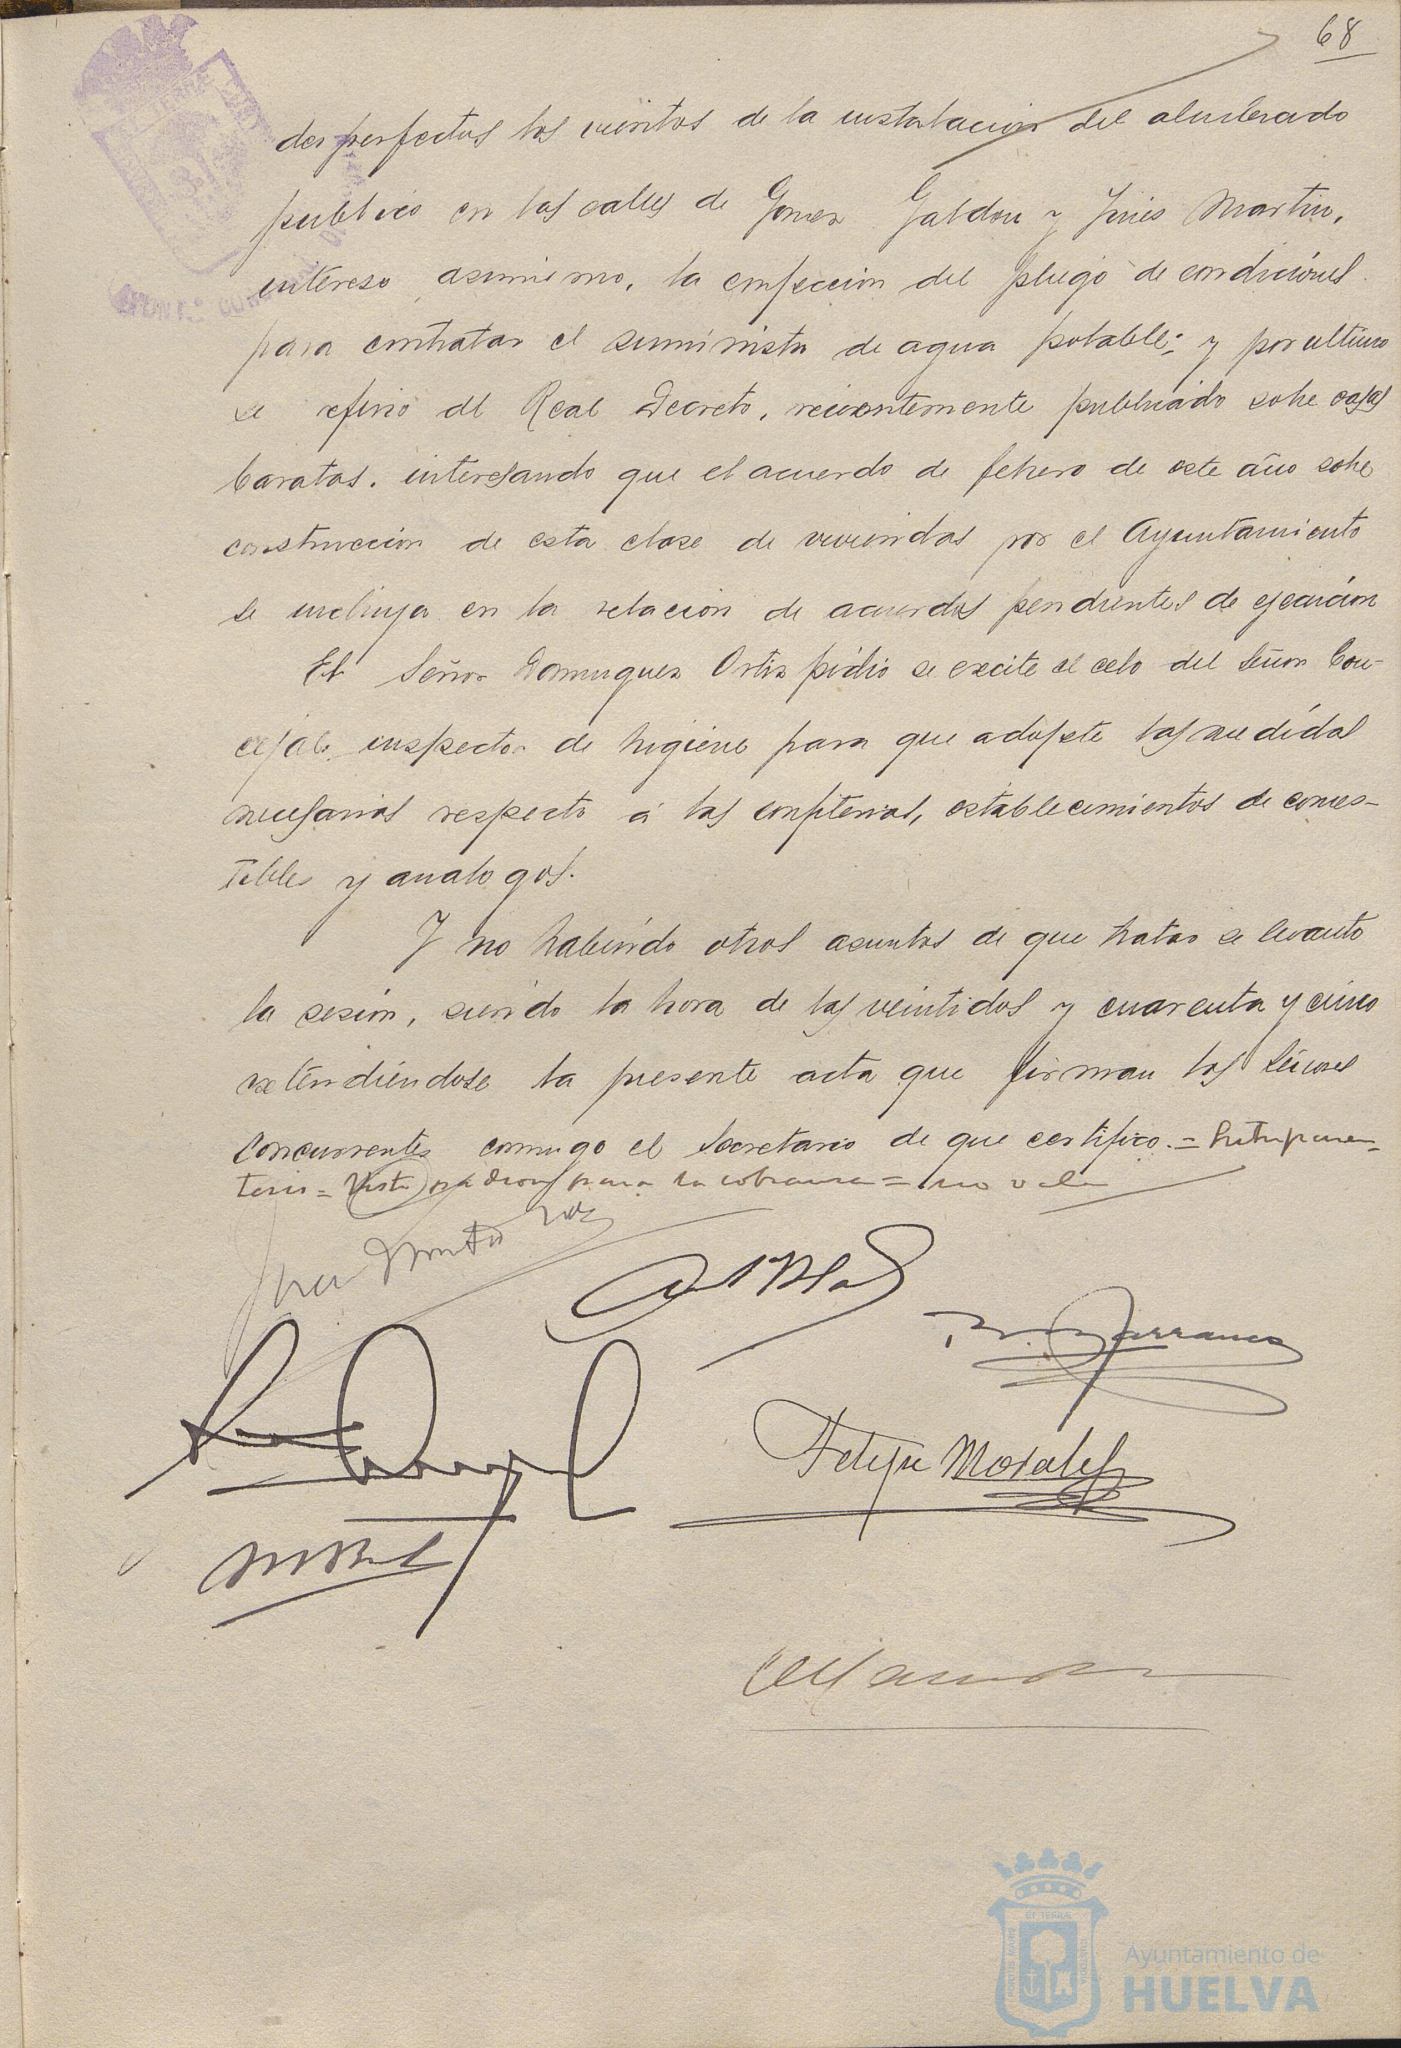 68
desperfectos los vientos de la instalacion del alumbrado
publico en las calles de Gomez Galdon y Ginés Martin,
intereso asimismo, la confeccion del pliego de condiciones
para contratar el suministro de agua potable; y por ultimo
se refirio al Real Decreto, recientemente publicado sobre casas
baratas, interesando que el acuerdo de febrero de este año sobre
construccion de esta clase de viviendas por el Ayuntamiento
se incluya en la relacion de acuerdos pendientes de ejecucion
El Señor Dominguez Ortiz pidio se excite el celo del Señor Con-
cejal inspector de higiene para que adopte las medidas
necesarias respecto á las confiterias, establecimientos de comes-
tibles y analogos.
Y no habiendo otros asuntos de que tratar se levanto
la sesion, siendo la hora de las veintidos y cuarenta y cinco
extendiéndose la presente acta que firman los Señores
concurrentes conmigo el Secretario de que certifico. = Entreparen-
tesis = padron para la cobranza = no vale
Felipe Morales
Ayuntamiento de
HUELVA